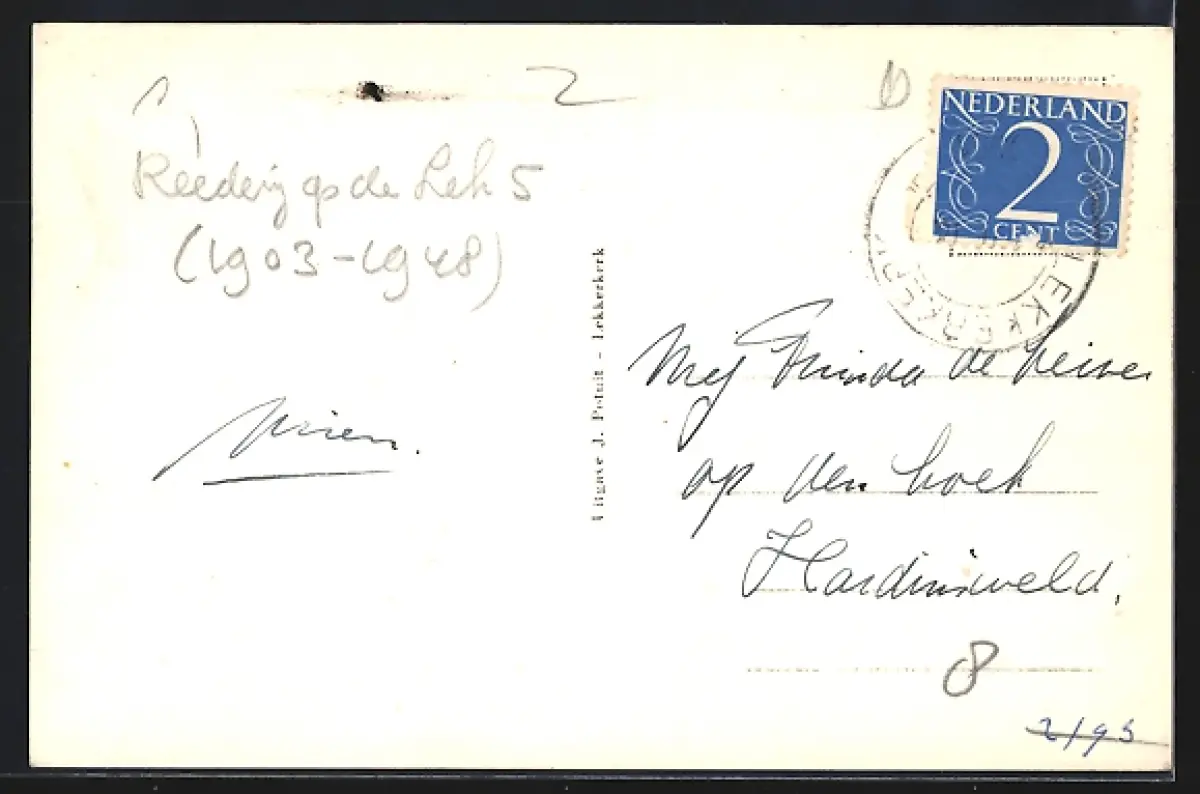 2
Reederij op de Lek 5
(1903-1948)
Uitgave J. Potuit - Lekkerkerk
NEDERLAND
2
CENT
LEKKERKERK
Mej de
op den hoek
Hardinxveld.
8
2/95